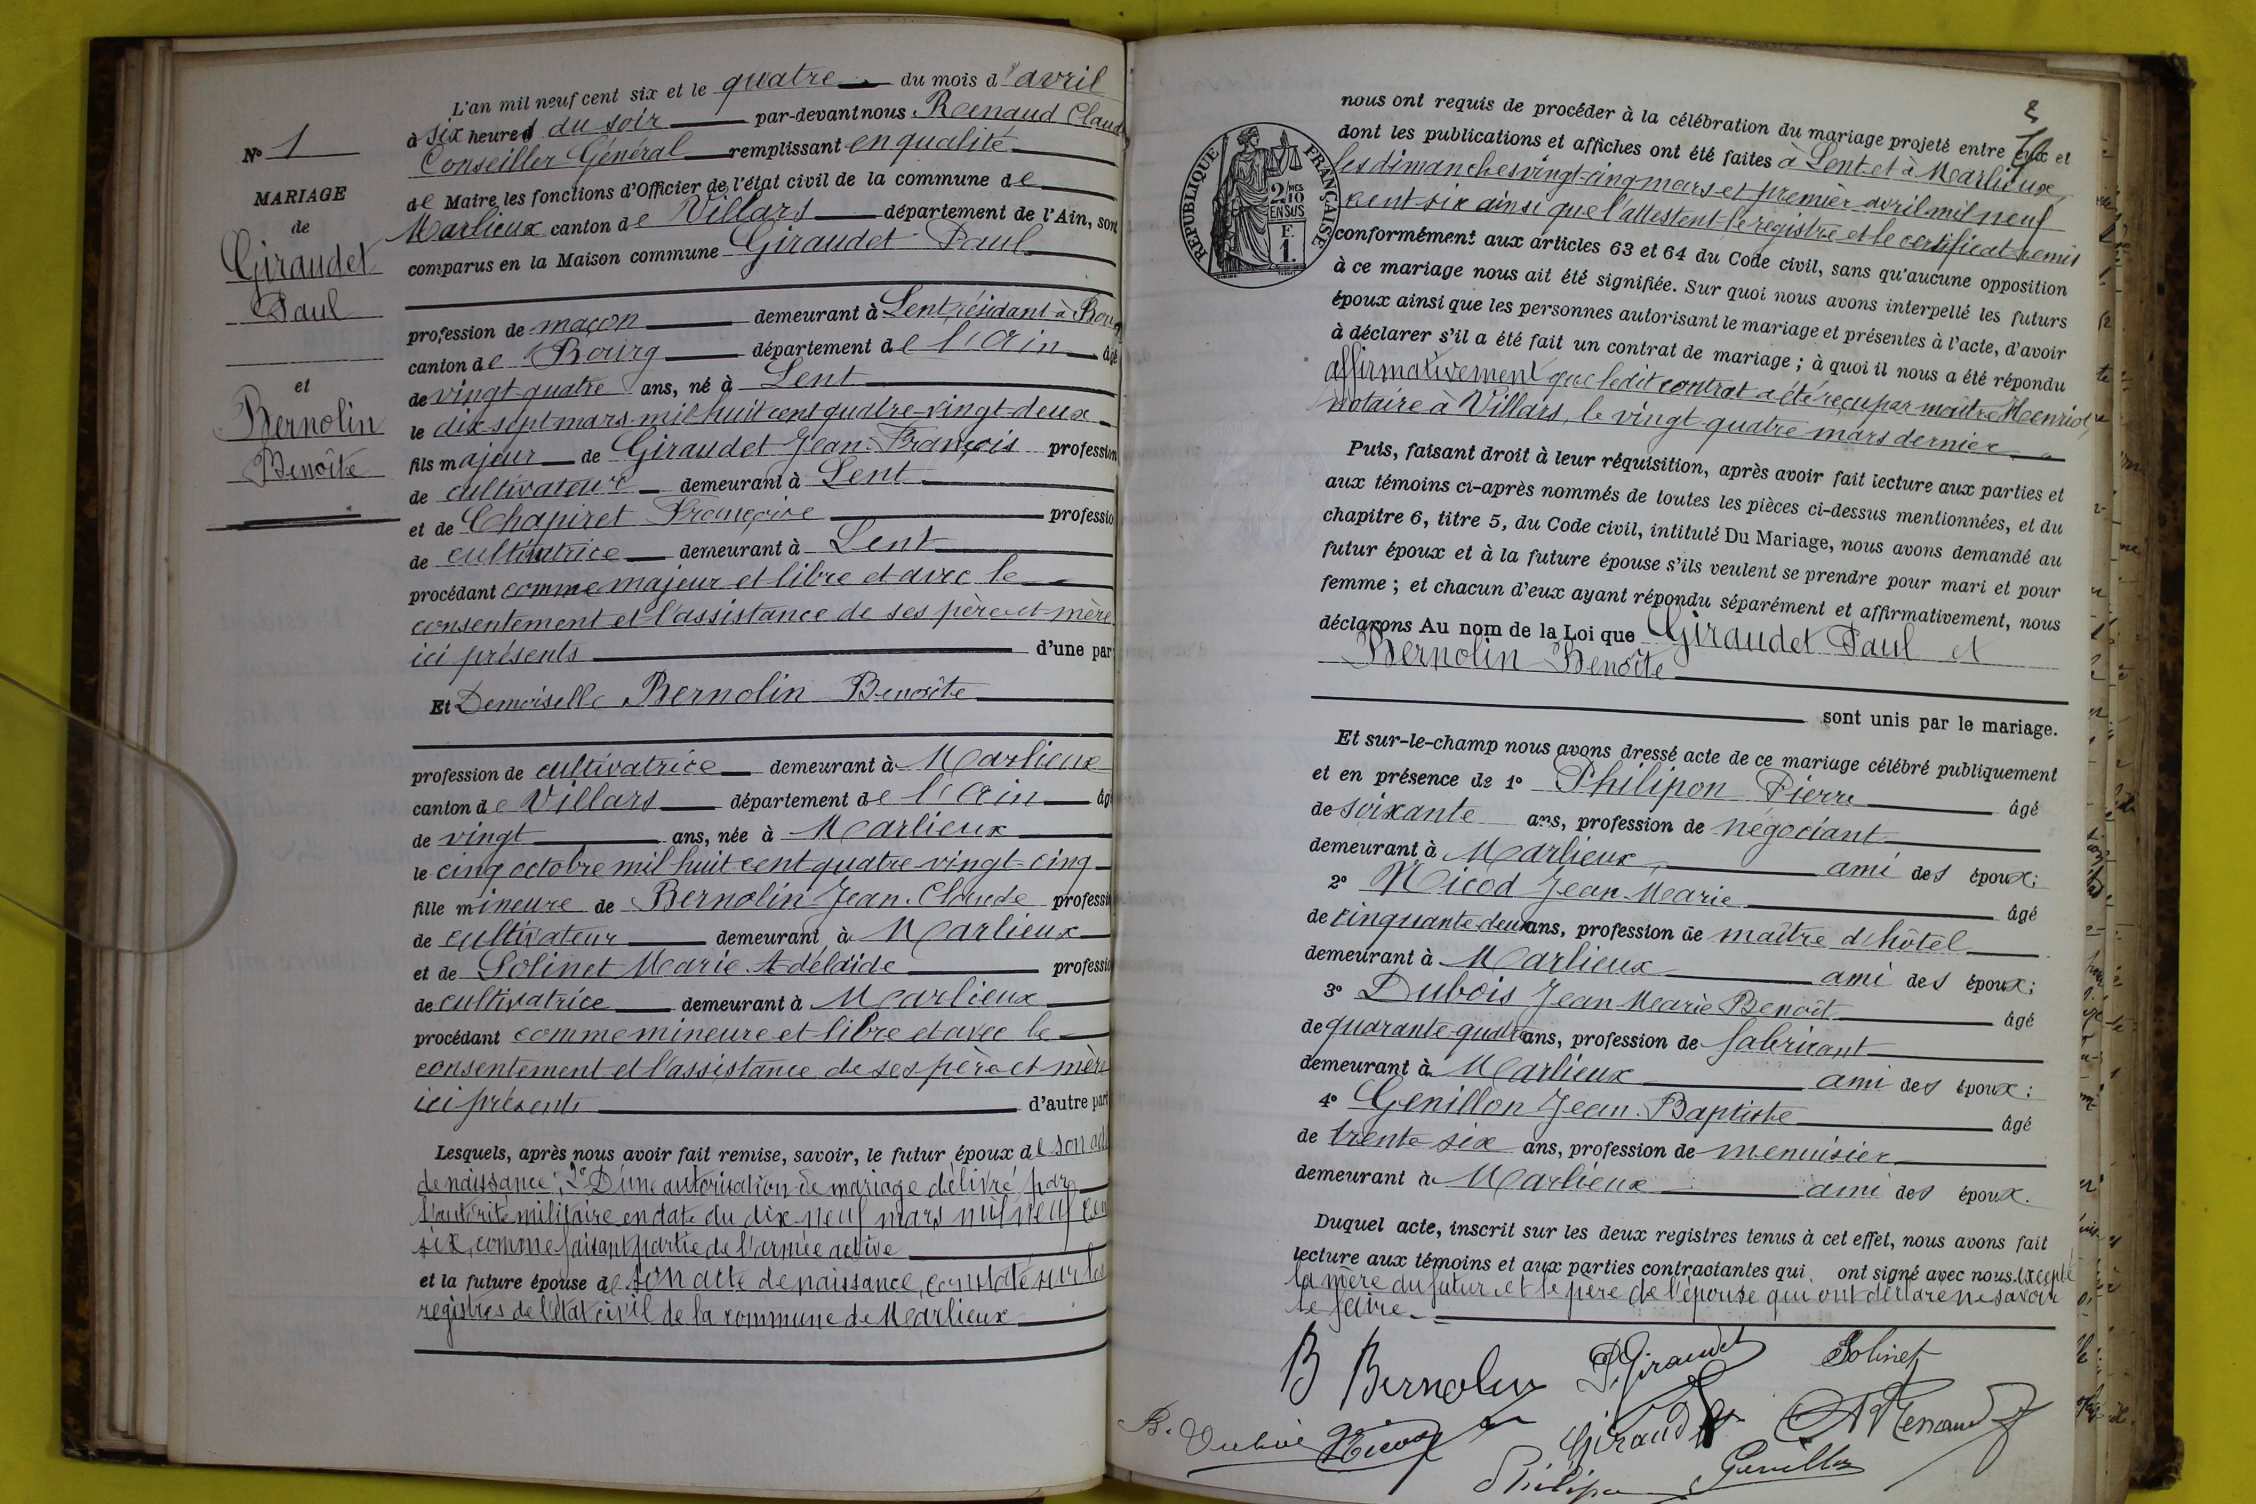 N° 1
MARIAGE
de
Giraudet
Paul
et
Bernolin
Benoîte
L'an mil neuf cent six et le quatre du mois d'avril
à six heures du soir par-devant nous Renaud Claude
Conseiller Général remplissant en qualité
de Maire les fonctions d'Officier de l'état civil de la commune de
Marlieux canton de Villars département de l'Ain, sont
comparus en la Maison commune Giraudet Paul
profession de maçon demeurant à Lent résidant à Bourg
canton de Bourg département de l'Ain âgé
de vingt quatre ans, né à Lent
le dix sept mars mil huit cent quatre-vingt-deux
fils majeur de Giraudet Jean-François profession
de cultivateur demeurant à Lent
et de Chapiret Françoise profession
de cultivatrice demeurant à Lent
procédant comme majeur et libre et avec le
consentement et l'assistance de ses père et mère
ici présents d'une part
Et Demoiselle Bernolin Benoîte
profession de cultivatrice demeurant à Marlieux
canton de Villars département de l'Ain âgé
de vingt ans, née à Marlieux
le cinq octobre mil huit cent quatre-vingt-cinq
fille mineure de Bernolin Jean-Claude profession
de cultivateur demeurant à Marlieux
et de Solinet Marie Adélaïde profession
de cultivatrice demeurant à Marlieux
procédant comme mineure et libre et avec le
consentement et l'assistance de ses père et mère
ici présents d'autre part
Lesquels, après nous avoir fait remise, savoir, le futur époux de son acte
de naissance; 2° D'une autorisation de mariage délivré par
l'autorité militaire en date du dix-neuf mars mil neuf cent
six, comme faisant partie de l'armée active
et la future épouse de son acte de naissance, constaté sur les
registres de l'état civil de la commune de Marlieux
2
RÉPUBLIQUE FRANÇAISE
2/10
EN SUS
F.
1.
nous ont requis de procéder à la célébration du mariage projeté entre eux et
dont les publications et affiches ont été faites à Lent et à Marlieux
les dimanches vingt-cinq mars et premier avril mil neuf
cent six ainsi que l'attestent le registre et le certificat remis
conformément aux articles 63 et 64 du Code civil, sans qu'aucune opposition
à ce mariage nous ait été signifiée. Sur quoi nous avons interpellé les futurs
époux ainsi que les personnes autorisant le mariage et présentes à l'acte, d'avoir
à déclarer s'il a été fait un contrat de mariage; à quoi il nous a été répondu
affirmativement que ledit contrat a été reçu par maître Henriot,
notaire à Villars, le vingt-quatre mars dernier
Puis, faisant droit à leur réquisition, après avoir fait lecture aux parties et
aux témoins ci-après nommés de toutes les pièces ci-dessus mentionnées, et du
chapitre 6, titre 5, du Code civil, intitulé Du Mariage, nous avons demandé au
futur époux et à la future épouse s'ils veulent se prendre pour mari et pour
femme; et chacun d'eux ayant répondu séparément et affirmativement, nous
déclarons Au nom de la Loi que Giraudet Paul et
Bernolin Benoîte
sont unis par le mariage.
Et sur-le-champ nous avons dressé acte de ce mariage célébré publiquement
et en présence de 1° Philipon Pierre âgé
de soixante ans, profession de négociant
demeurant à Marlieux, ami des époux;
2° Nicod Jean-Marie âgé
de cinquante-deux ans, profession de maître d'hôtel
demeurant à Marlieux ami des époux;
3° Dubois Jean Marie Benoît âgé
de quarante-quatre ans, profession de fabricant
demeurant à Marlieux ami des époux;
4° Genillon Jean-Baptiste âgé
de trente six ans, profession de menuisier
demeurant à Marlieux ami des époux.
Duquel acte, inscrit sur les deux registres tenus à cet effet, nous avons fait
lecture aux témoins et aux parties contractantes qui ont signé avec nous. Excepté
la mère du futur et le père de l'épouse qui ont déclaré ne savoir
le faire.
B Bernolin P. Giraudet Solinet
B. Dubois Nicod Giraudet Renaud
Philipon Genillon